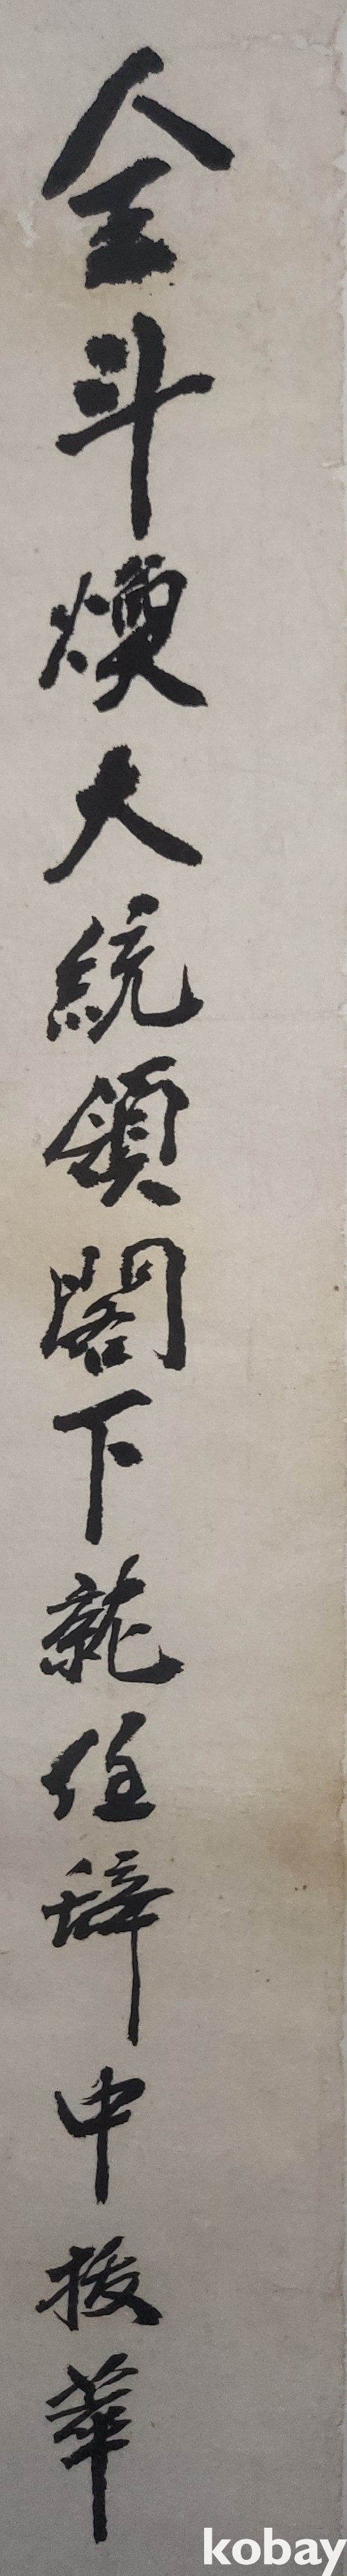 全斗煥大統領閣下就任辞中拔萃
kobay